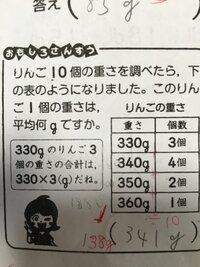 答え(85g
おもしろさんすう
りんご10個の重さを調べたら、下
の表のようになりました。このりん
ご1個の重さは、
平均何gですか。
りんごの重さ
重さ 個数
330g 3個
340g 4個
350g 2個
360g 1個
330gのりんご3
個の重さの合計は、
330×3(g)だね。
÷10
138g
(341g